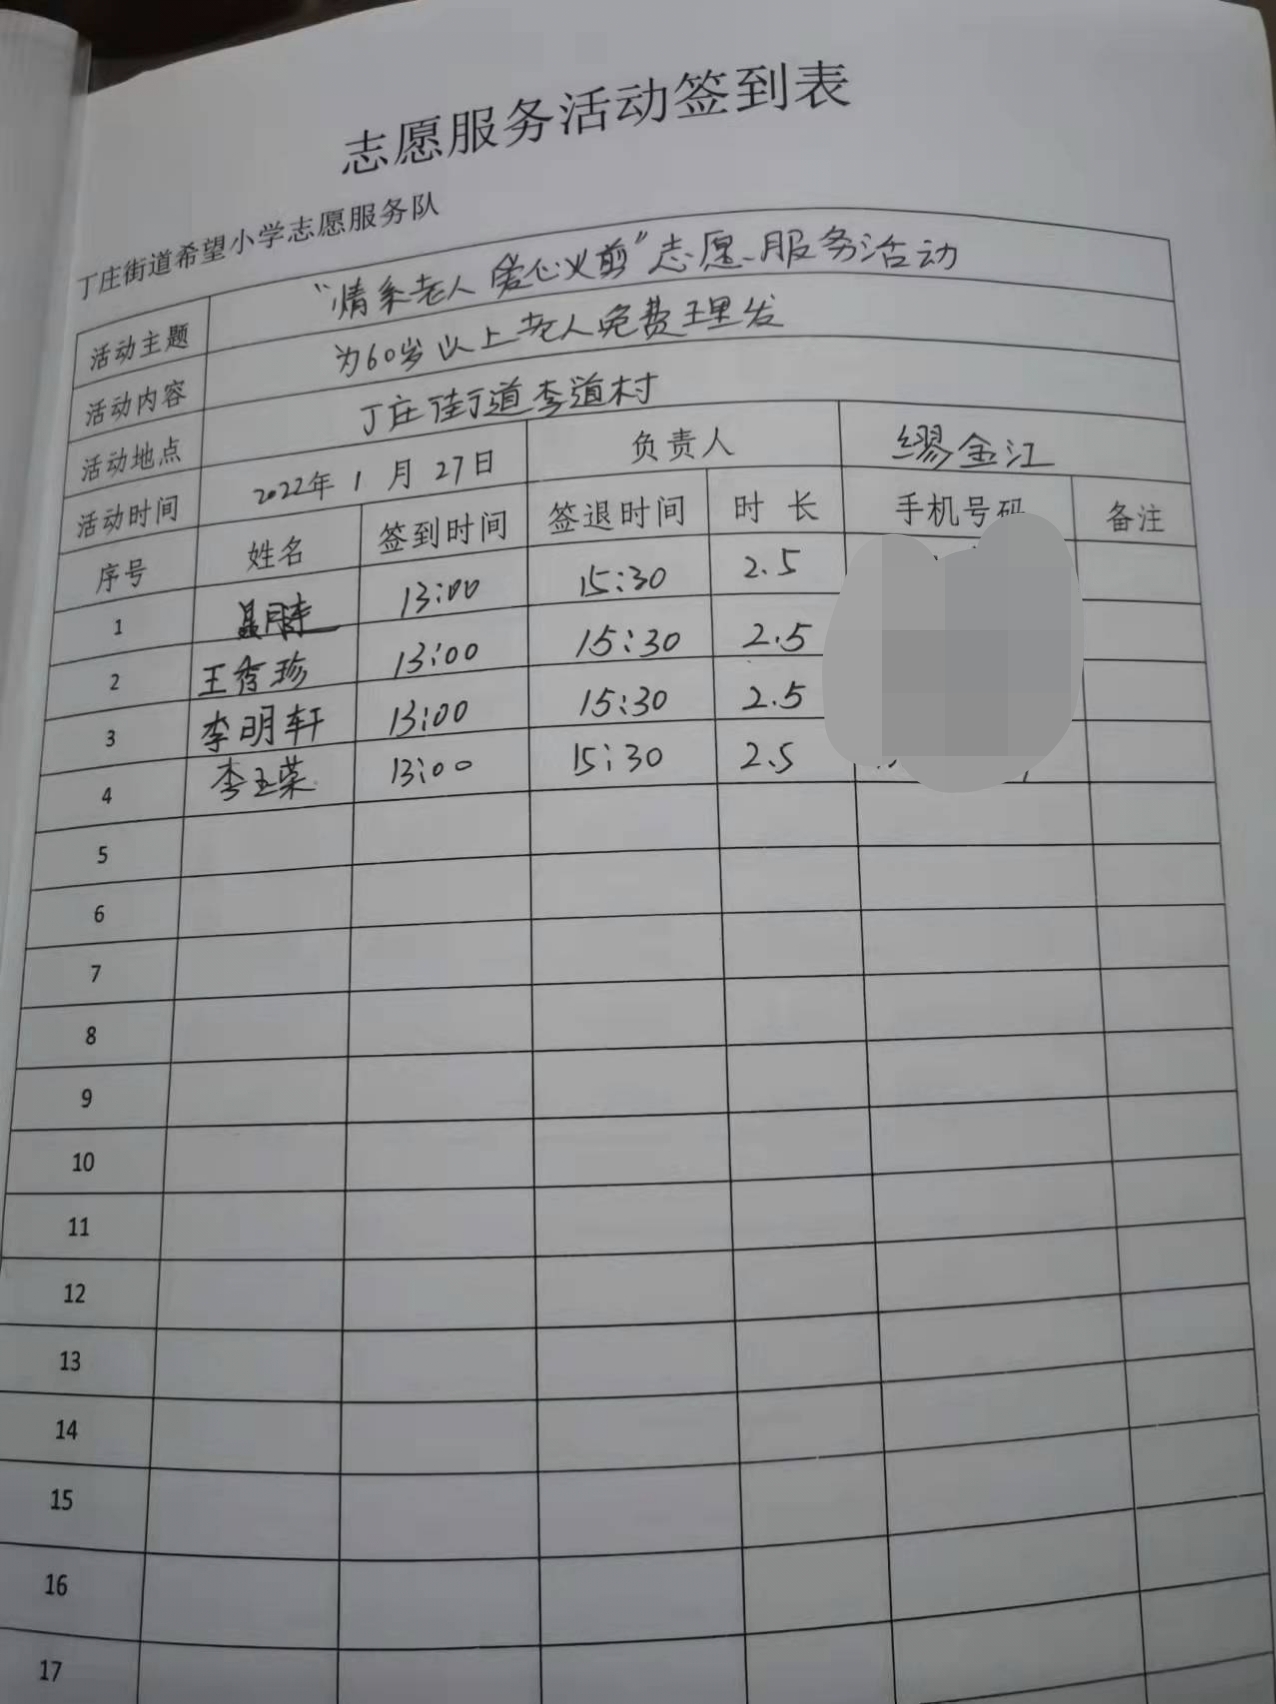 志愿服务活动签到表
丁庄街道希望小学志愿服务队
活动主题 “情系老人 爱心义剪”志愿服务活动
活动内容 为60岁以上老人免费理发
活动地点 丁庄街道李道村
活动时间 2022年1月27日 负责人 缪金江
序号 姓名 签到时间 签退时间 时长 手机号码 备注
1 13:00 15:30 2.5
2 王秀珍 13:00 15:30 2.5
3 李明轩 13:00 15:30 2.5
4 李玉荣 13:00 15:30 2.5
5
6
7
8
9
10
11
12
13
14
15
16
17